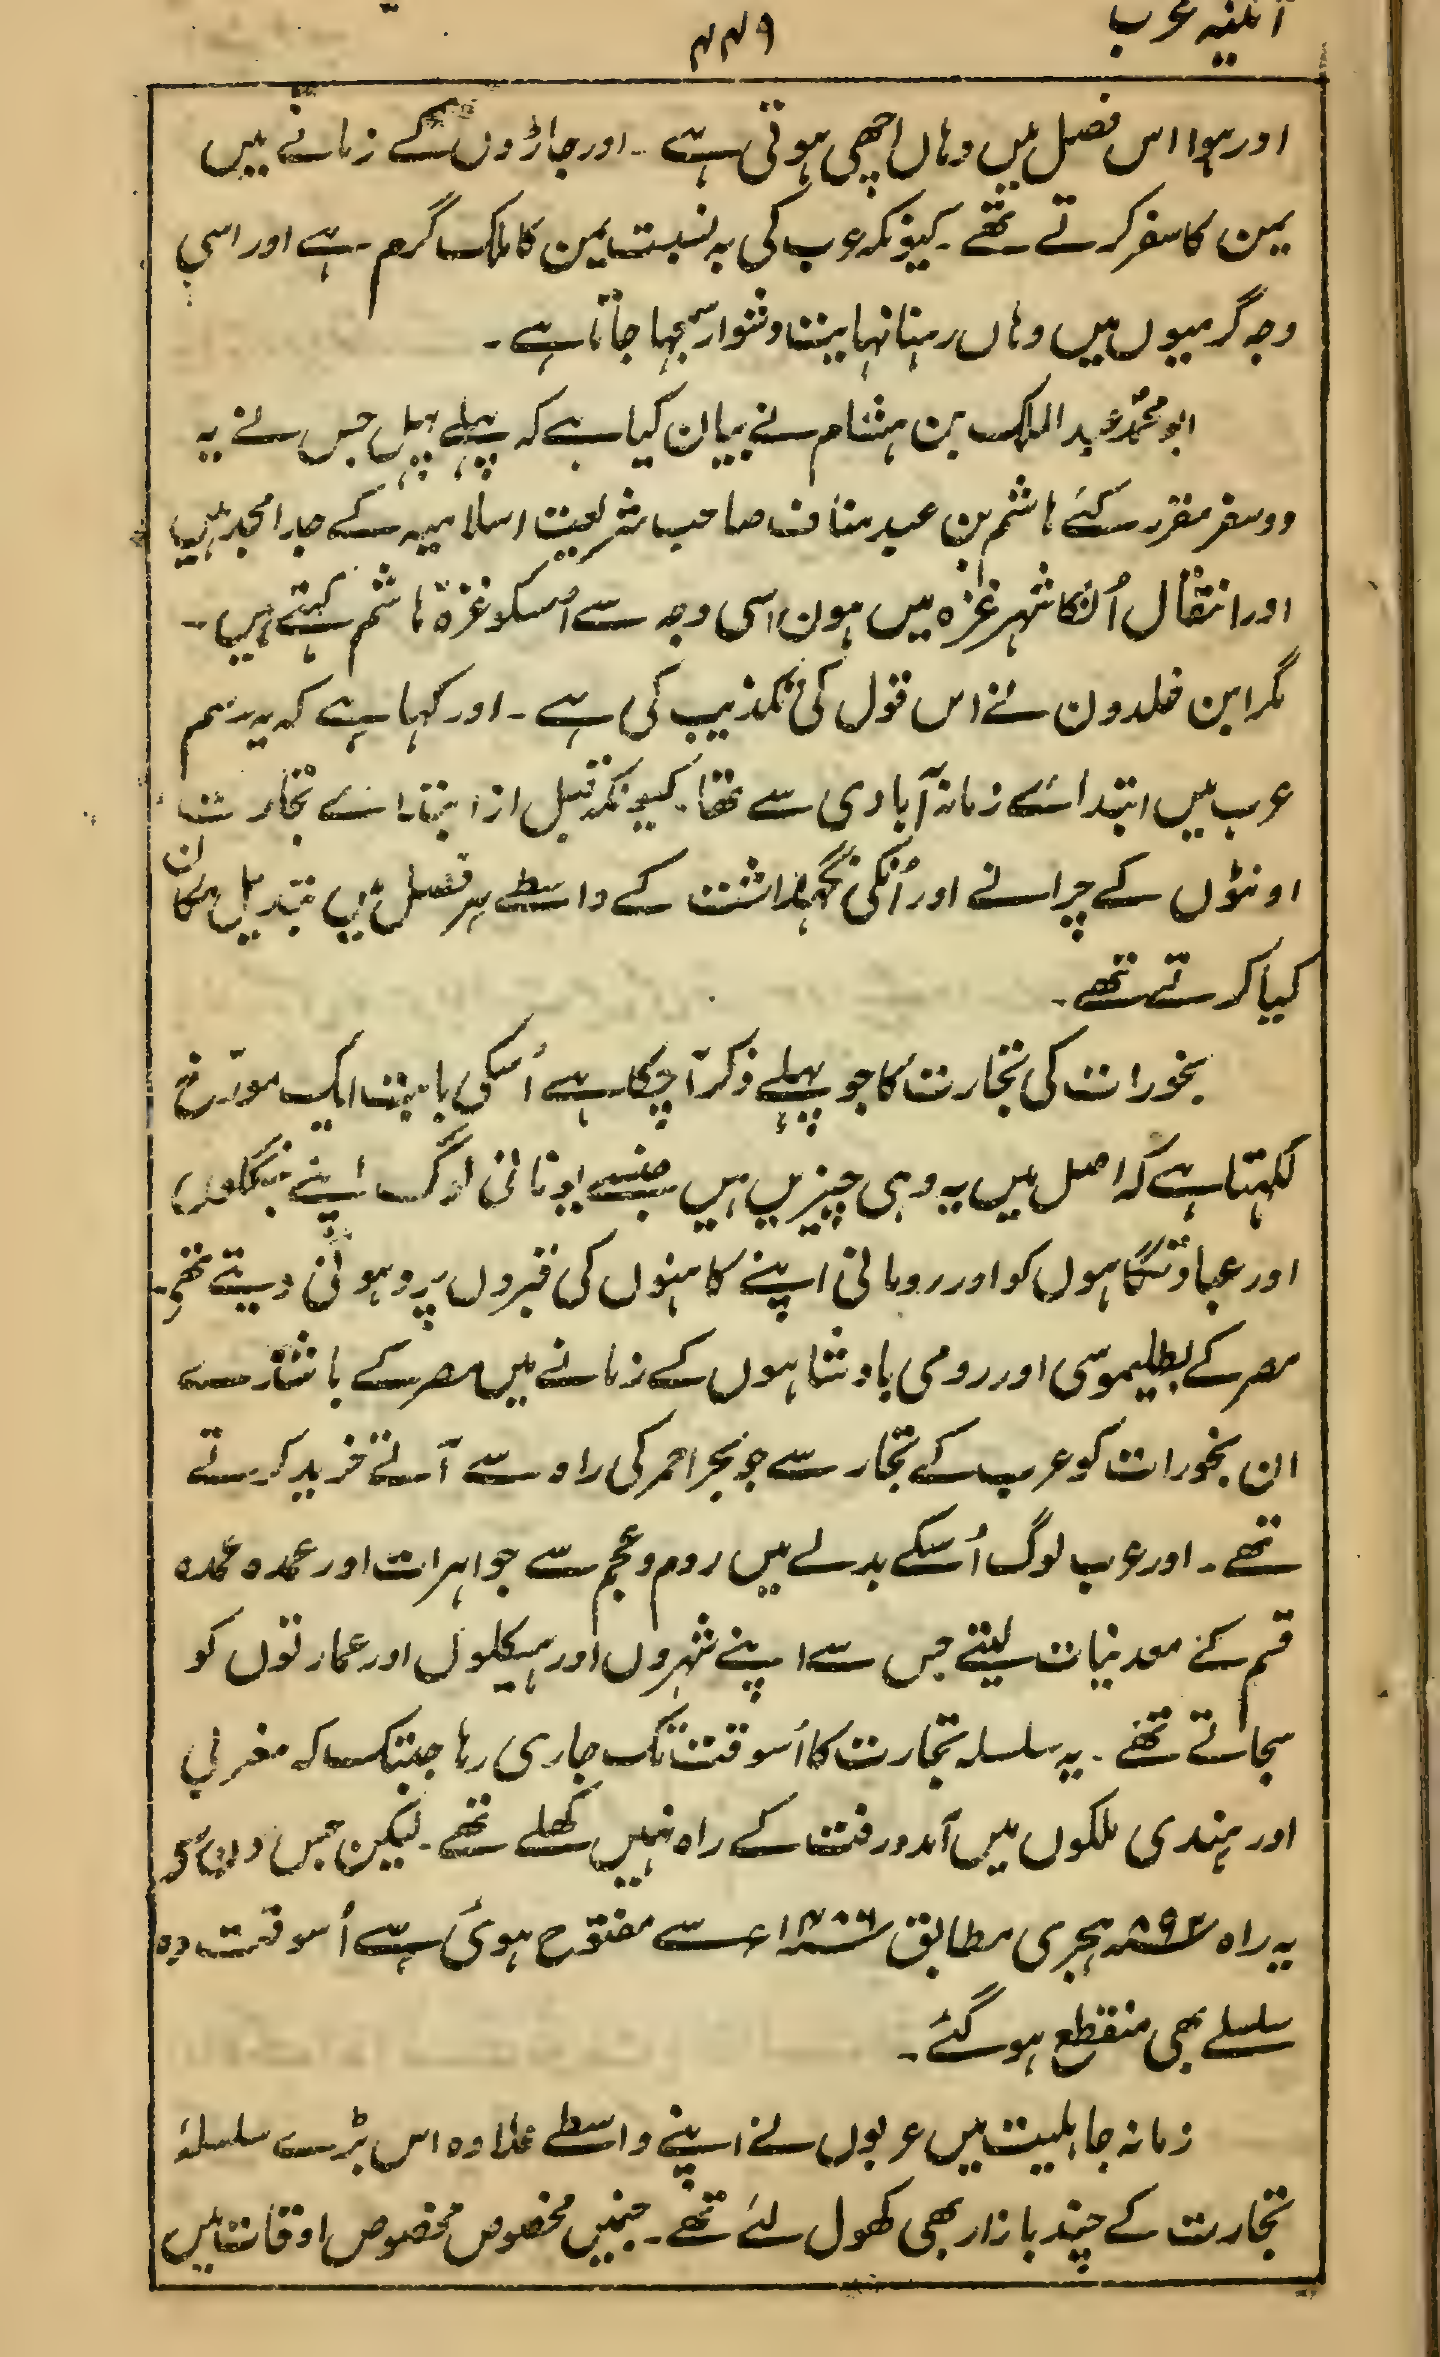 آئینہ عرب ۴۴۹
اور ہوا اس فصل میں وہاں اچھی ہوتی ہے ۔ اور جاڑوں کے زمانے میں
یمن کا سفر کرتے تھے ۔ کیونکہ عرب کی بہ نسبت یمن کا ملک گرم ہے اور اسی
وجہ گرمیوں میں وہاں رہنا نہایت دشوار سمجہا جاتا ہے ۔
ابو محمد عبد الملک بن ہشام نے بیان کیا ہے کہ پہلے پہل جس نے یہ
دو سفر مقرر کئے ہاشم بن عبد مناف صاحب شریعت اسلامیہ کے جد امجد ہیں
اور انتقال اُنکا شہر غزہ میں ہوں اسی وجہ سے اسکو غزۃ ہاشم کہتے ہیں ۔
مگر ابن خلدون نے اس قول کی تکذیب کی ہے ۔ اور کہا ہے کہ یہ رسم
عرب میں ابتدائے زمانہ آبادی سے تھا ۔ کیونکہ قبل از ابتدائے تجارت
اونٹوں کے چرانے اور اُنکی نگہداشت کے واسطے ہر فصل میں تبدیل مکان
کیا کرتے تھے ۔
بخورات کی تجارت کا جو پہلے ذکر آ چکا ہے اُسکی بابت ایک مورّخ
لکہتا ہے کہ اصل میں یہ وہی چیزیں ہیں جنسے یونانی لوگ اپنے ہیکلوں
اور عبادتگاہوں کو اور رومانی اپنے کاہنوں کی قبروں پر دھونی دیتے تھے ۔
مصر کے بطلیموسی اور رومی بادشاہوں کے زمانے میں مصر کے باشندے
ان بخورات کو عرب کے تجار سے جو بحر احمر کی راہ سے آتے خرید کرتے
تھے ۔ اور عرب لوگ اُسکے بدلے میں روم و عجم سے جواہرات اور عمدہ عمدہ
قسم کے معدنیات لیتے جس سے اپنے شہروں اور ہیکلوں اور عمارتوں کو
سجاتے تھے ۔ یہ سلسلہ تجارت کا اُسوقت تک جاری رہا جبتک کہ مغربی
اور ہندی ملکوں میں آمدورفت کے راہ نہیں کھلے تھے ۔ لیکن جس دن سے
یہ راہ ۸۹۲ ہجری مطابق ۱۴۸۶ء سے مفتوح ہوئی ہے اُسوقت وہ
سلسلے بھی منقطع ہو گئے ۔
زمانہ جاہلیت میں عربوں نے اپنے واسطے علاوہ اس بڑے سلسلۂ
تجارت کے چند بازار بھی کھول لئے تھے ۔ جنمیں مخصوص مخصوص اوقات میں